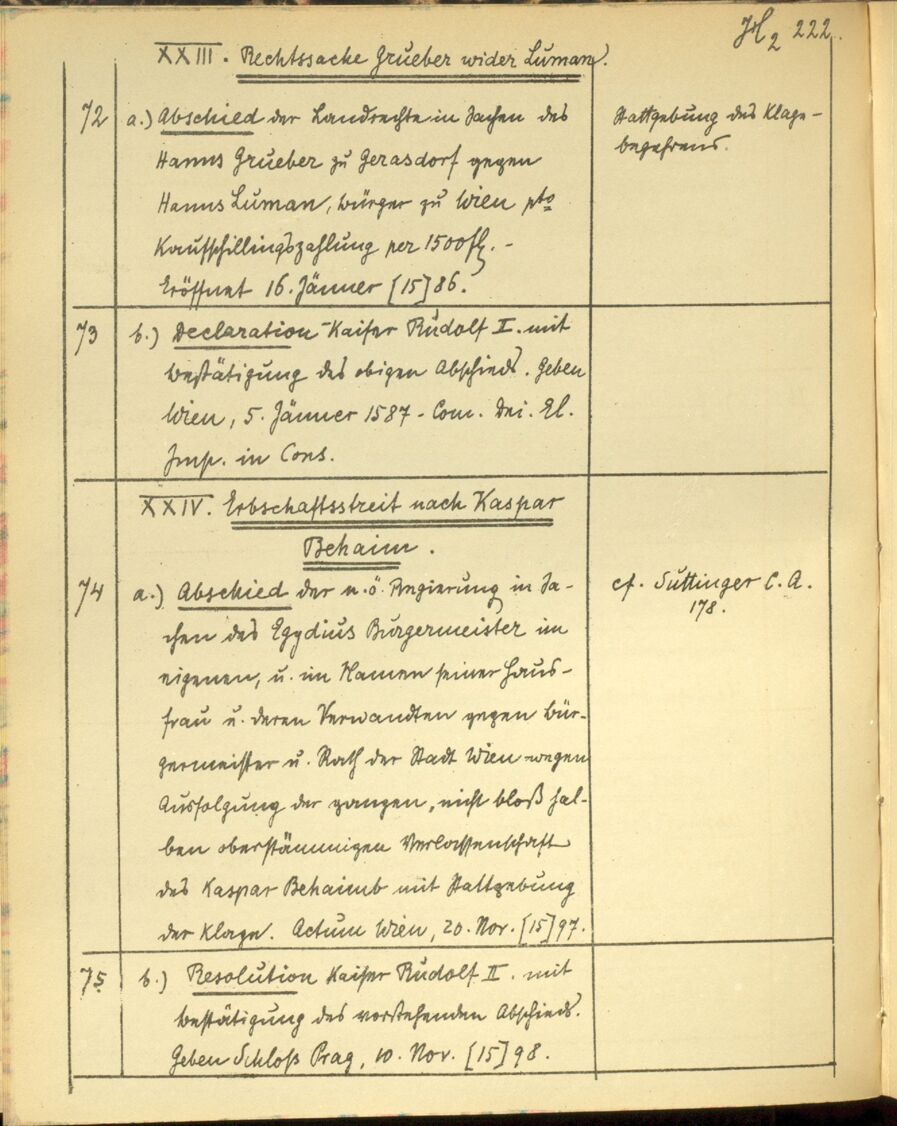 222.
XXIII. Rechtssache Grueber wider Luman.
72 a.) Abschied der Landrechte in Sachen des
Hanns Grueber zu Gerasdorf gegen
Hanns Luman, Bürger zu Wien pto
Kaufschillingszahlung per 1500 fl. -
Eröffnet 16. Jänner [15]86.
Stattgebung des Klage-
begehrens.
73 b.) Declaration Kaiser Rudolf II. mit
Bestätigung des obigen Abschieds. Geben
Wien, 5. Jänner 1587 - Com. Dni. El.
Imp. in Cons.
XXIV. Erbschaftsstreit nach Kaspar
Behaim.
74 a.) Abschied der n. ö. Regierung in Sa-
chen des Egydius Burgermeister im
eigenen, u. im Namen seiner Haus-
frau u. deren Verwandten gegen Bür-
germeister u. Rath der Stadt Wien wegen
Ausfolgung der ganzen, nicht bloß hal-
ben oberstämmigen Verlassenschaft
des Kaspar Behaimb mit Stattgebung
der Klage. Actum Wien, 20. Nov. [15]97.
cf. Suttinger C. A.
178.
75 b.) Resolution Kaiser Rudolf II. mit
Bestätigung des vorstehenden Abschieds.
Geben Schloß Prag, 10. Nov. [15]98.